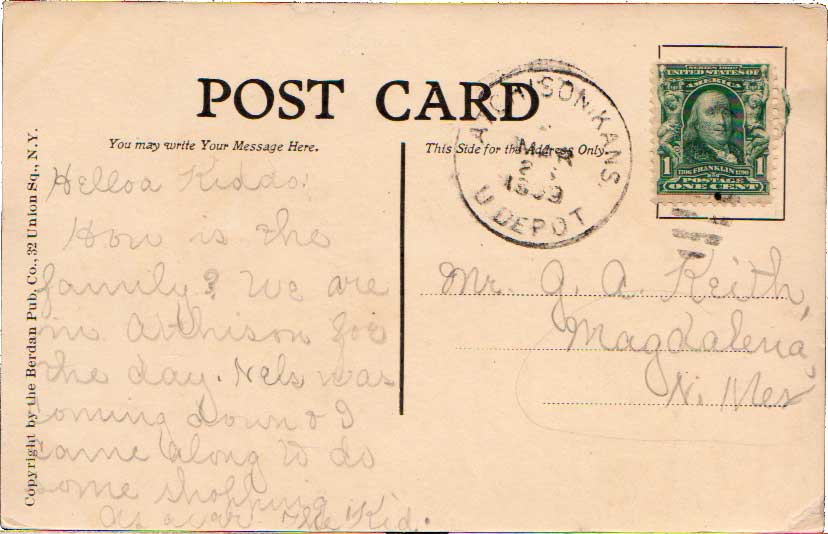 POST CARD
You may write Your Message Here.
This Side for the Address Only.
Copyright by the Berdan Pub. Co., 32 Union Sq., N.Y.
ATCHISON, KANS.
MAR
2
1909
U DEPOT
SERIES 1902
UNITED STATES OF
AMERICA
1 1
1706 FRANKLIN 1790
POSTAGE
ONE CENT
Helloa Kiddo!
How is the
family? We are
in Atchison for
the day. Nels was
coming down & I
came along to do
some shopping
As ever The Kid.
Mr. G. A. Keith,
Magdalena,
N. Mex